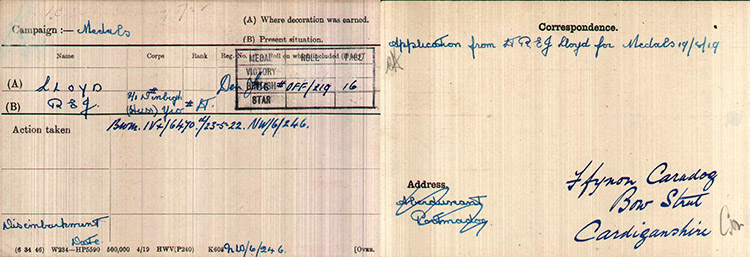 Campaign :— Medals
(A) Where decoration was earned.
(B) Present situation.
Name Corps Rank Reg. No. Roll on which included (if any)
MEDAL ROLL PAGE
VICTORY
BRITISH OFF/219 16
STAR
(A) LLOYD
(B) R E J. 2/1 Denbigh Lt.
(Huss) Yeo
Action taken Brom. IVX/6470 d/23-5-22. NW/6/246.
Disembarkment
Date
(6 34 46) W234—HP5590 500,000 4/19 HWV(P240) K608 NW/6/246. [OVER.
Correspondence.
Application from Lt R E J Lloyd for Medals 19/8/19
Address.
Portmadoc
Ffynon Caradog
Bow Strut
Cardiganshire